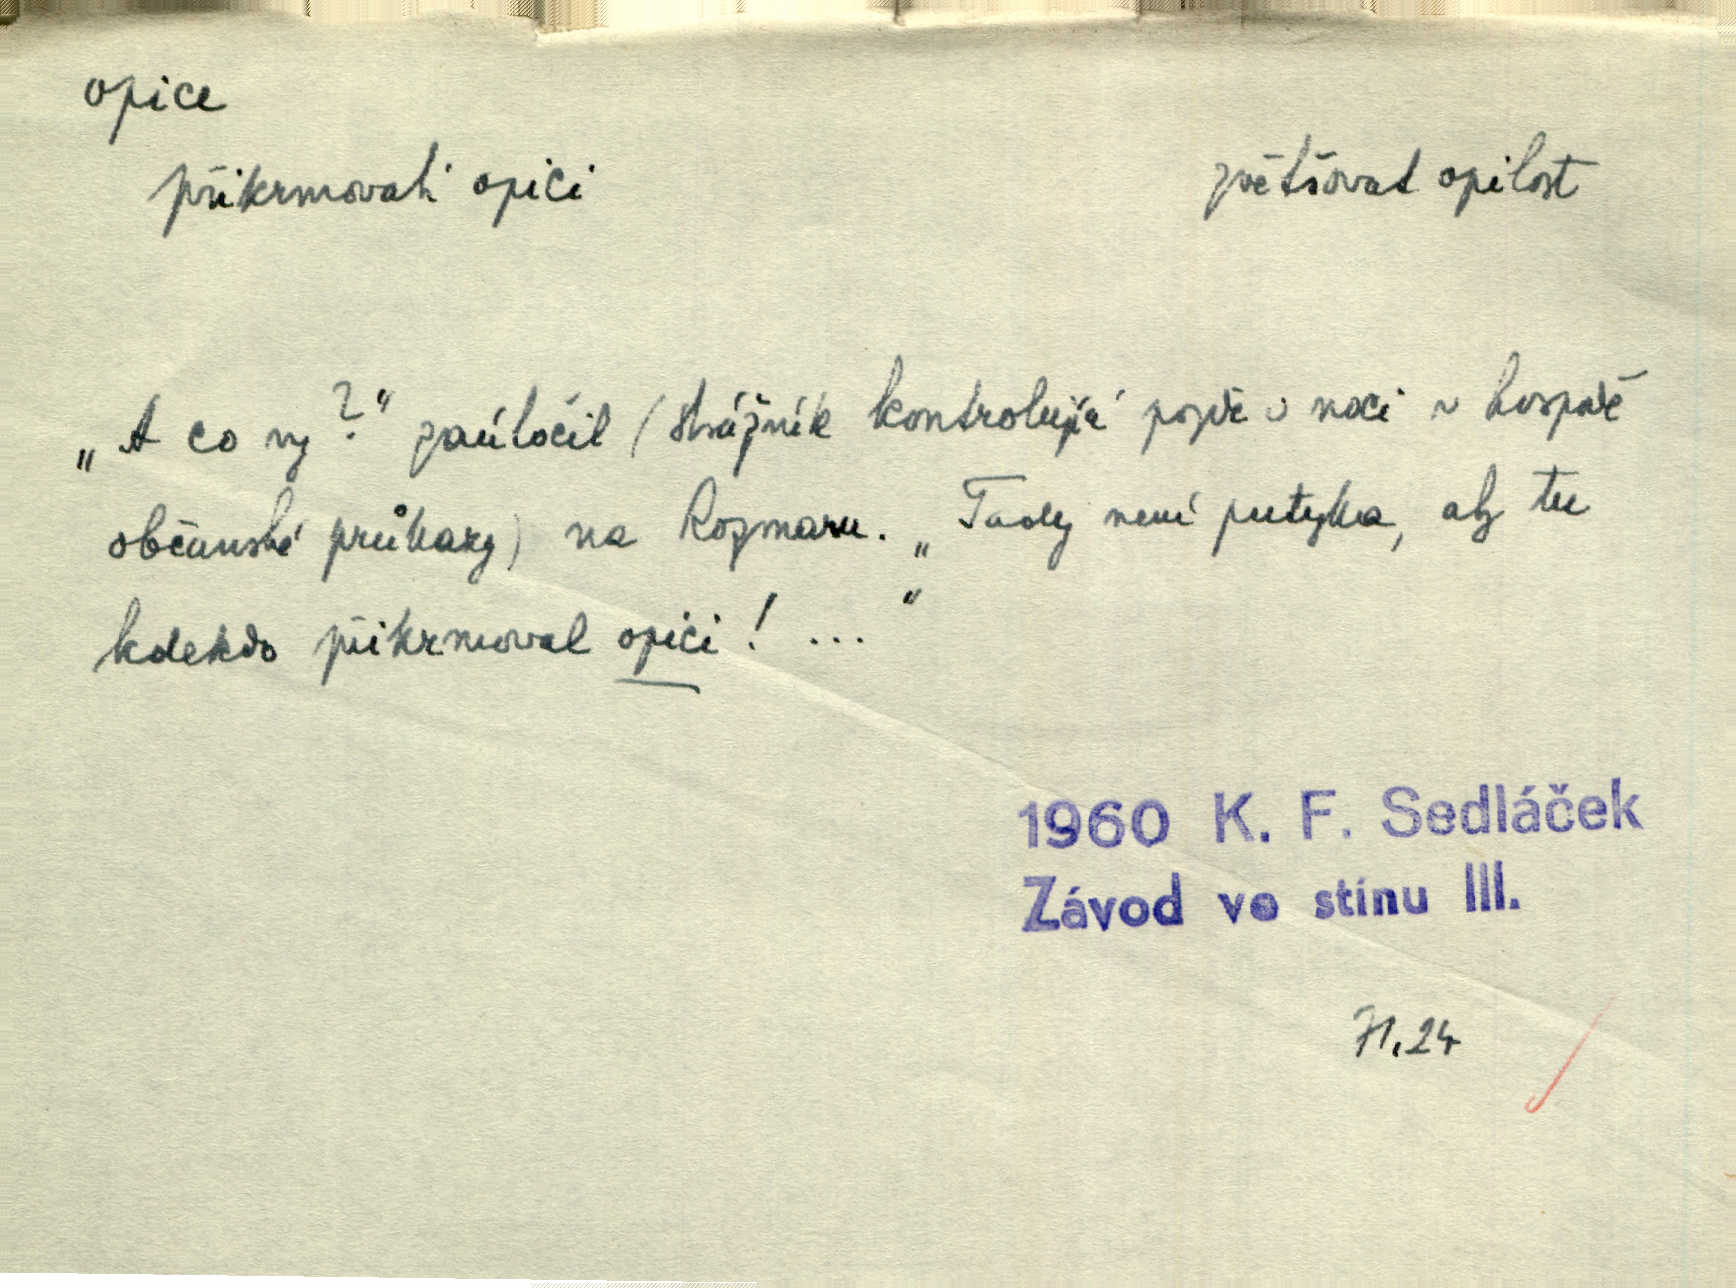 opice
přikrmovati opici
zvětšovat opilost
„A co vy?" zaútočil (strážník kontrolující pozdě v noci v hospodě
občanské průkazy) na Rozmaru. „Tady není putyka, aby tu
kdekdo přikrmoval opici! ..."
1960 K. F. Sedláček
Závod ve stínu III.
71.24